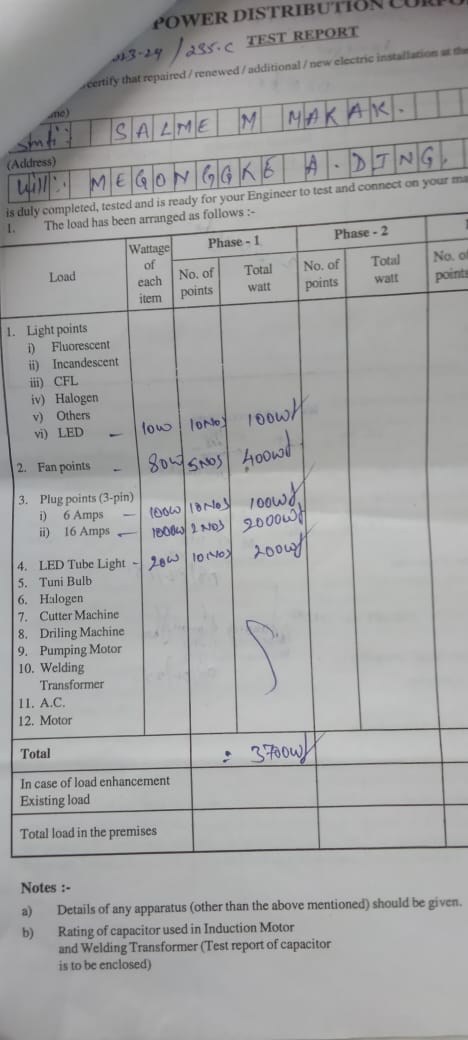 POWER DISTRIBUTION CORPO
23-24 / 235.C TEST REPORT
certify that repaired / renewed / additional / new electric installation at the
me)
Smti: SALME M MAKAK.
(Address)
Will:. MEGONGGKE A. DING.
is duly completed, tested and is ready for your Engineer to test and connect on your ma
1. The load has been arranged as follows :-
Load Wattage of each item Phase - 1 Phase - 2
No. of points Total watt No. of points Total watt No. of points
1. Light points
i) Fluorescent
ii) Incandescent
iii) CFL
iv) Halogen
v) Others
vi) LED – 10W 10NOS 100W
2. Fan points – 80W 5NOS 400W
3. Plug points (3-pin)
i) 6 Amps – 100W 10NOS 100W
ii) 16 Amps – 1000W 2NOS 2000W
4. LED Tube Light - 20W 10NOS 200W
5. Tuni Bulb
6. Halogen
7. Cutter Machine
8. Driling Machine
9. Pumping Motor
10. Welding
Transformer
11. A.C.
12. Motor
Total : 3700W
In case of load enhancement
Existing load
Total load in the premises
Notes :-
a) Details of any apparatus (other than the above mentioned) should be given.
b) Rating of capacitor used in Induction Motor
and Welding Transformer (Test report of capacitor
is to be enclosed)